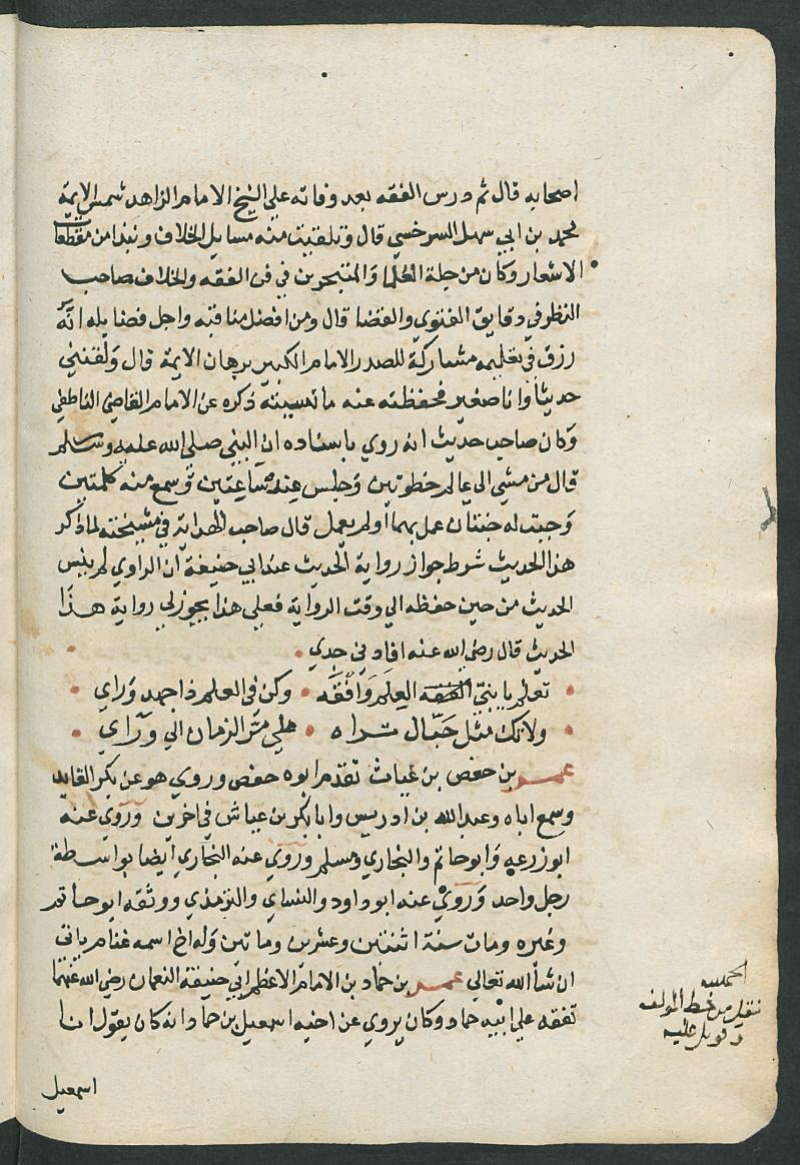 اصحابه قال ثم درس الفقه بعد وفاته علي الشيخ الامام الزاهد شمس الايمة
محمد بن ابي سهل السرخسي قال وتلقيت منه مسايل الخلاف ونبذا من مقطعات
الاشعار وكان من جلة العلما والمتبحرين في فن الفقه والخلاف صاحب
النظر في دقايق الفتوي والقضا قال ومن افضل مناقبه واجل فضايله انه
رزق في تعليمه مشاركة للصدر الامام الكبير برهان الايمة قال ولقنني
حديثا وانا صغير فحفظته عنه ما نسيته ذكره عن الامام القاضي الناطفي
وكان صاحب حديث انه روي باسناده ان النبي صلي الله عليه وسلم
قال من مشي الي عالم خطوتين وجلس عنده ساعتين وسمع منه كلمتين
وجبت له جنتان عمل بهما او لم يعمل قال صاحب الهداية في مشيخته لما ذكر
هذا الحديث شرط جواز رواية الحديث عند ابي حنيفة ان الراوي لم ينس
الحديث من حين حفظه الي وقت الرواية فعلي هذا يجوز لي رواية هذا
الحديث قال رضي الله عنه افادني جدي
تعلم يا بني العلم وافقه وكن في العلم ذا جهد وراي
ولا تك مثل حبال تراه علي مر الزمان الي وراي
عمر بن حفص بن غياث تقدم ابوه حفص وروي هو عن بكر القايد
وسمع اباه وعبد الله بن ادريس وابا بكر بن عياش في اخرين وروي عنه
ابو زرعه وابو حاتم والبخاري ومسلم وروي عنه البخاري ايضا بواسطة
رجل واحد وروي عنه ابو داود والنساي والترمذي ووثقه ابو حاتم
وغيره ومات سنة اثنتين وعشرين وماتين وله اخ اسمه غنام ياتي
ان شا الله تعالي عمر بن حماد بن الامام الاعظم ابي حنيفة النعمان رضي الله عنهما
تفقه علي ابيه حماد وكان يروي عن اخيه اسمعيل بن حماد انه كان يقول انا
اسمعيل
الحمد لله
نقل من خط المولف
وقوبل عليه